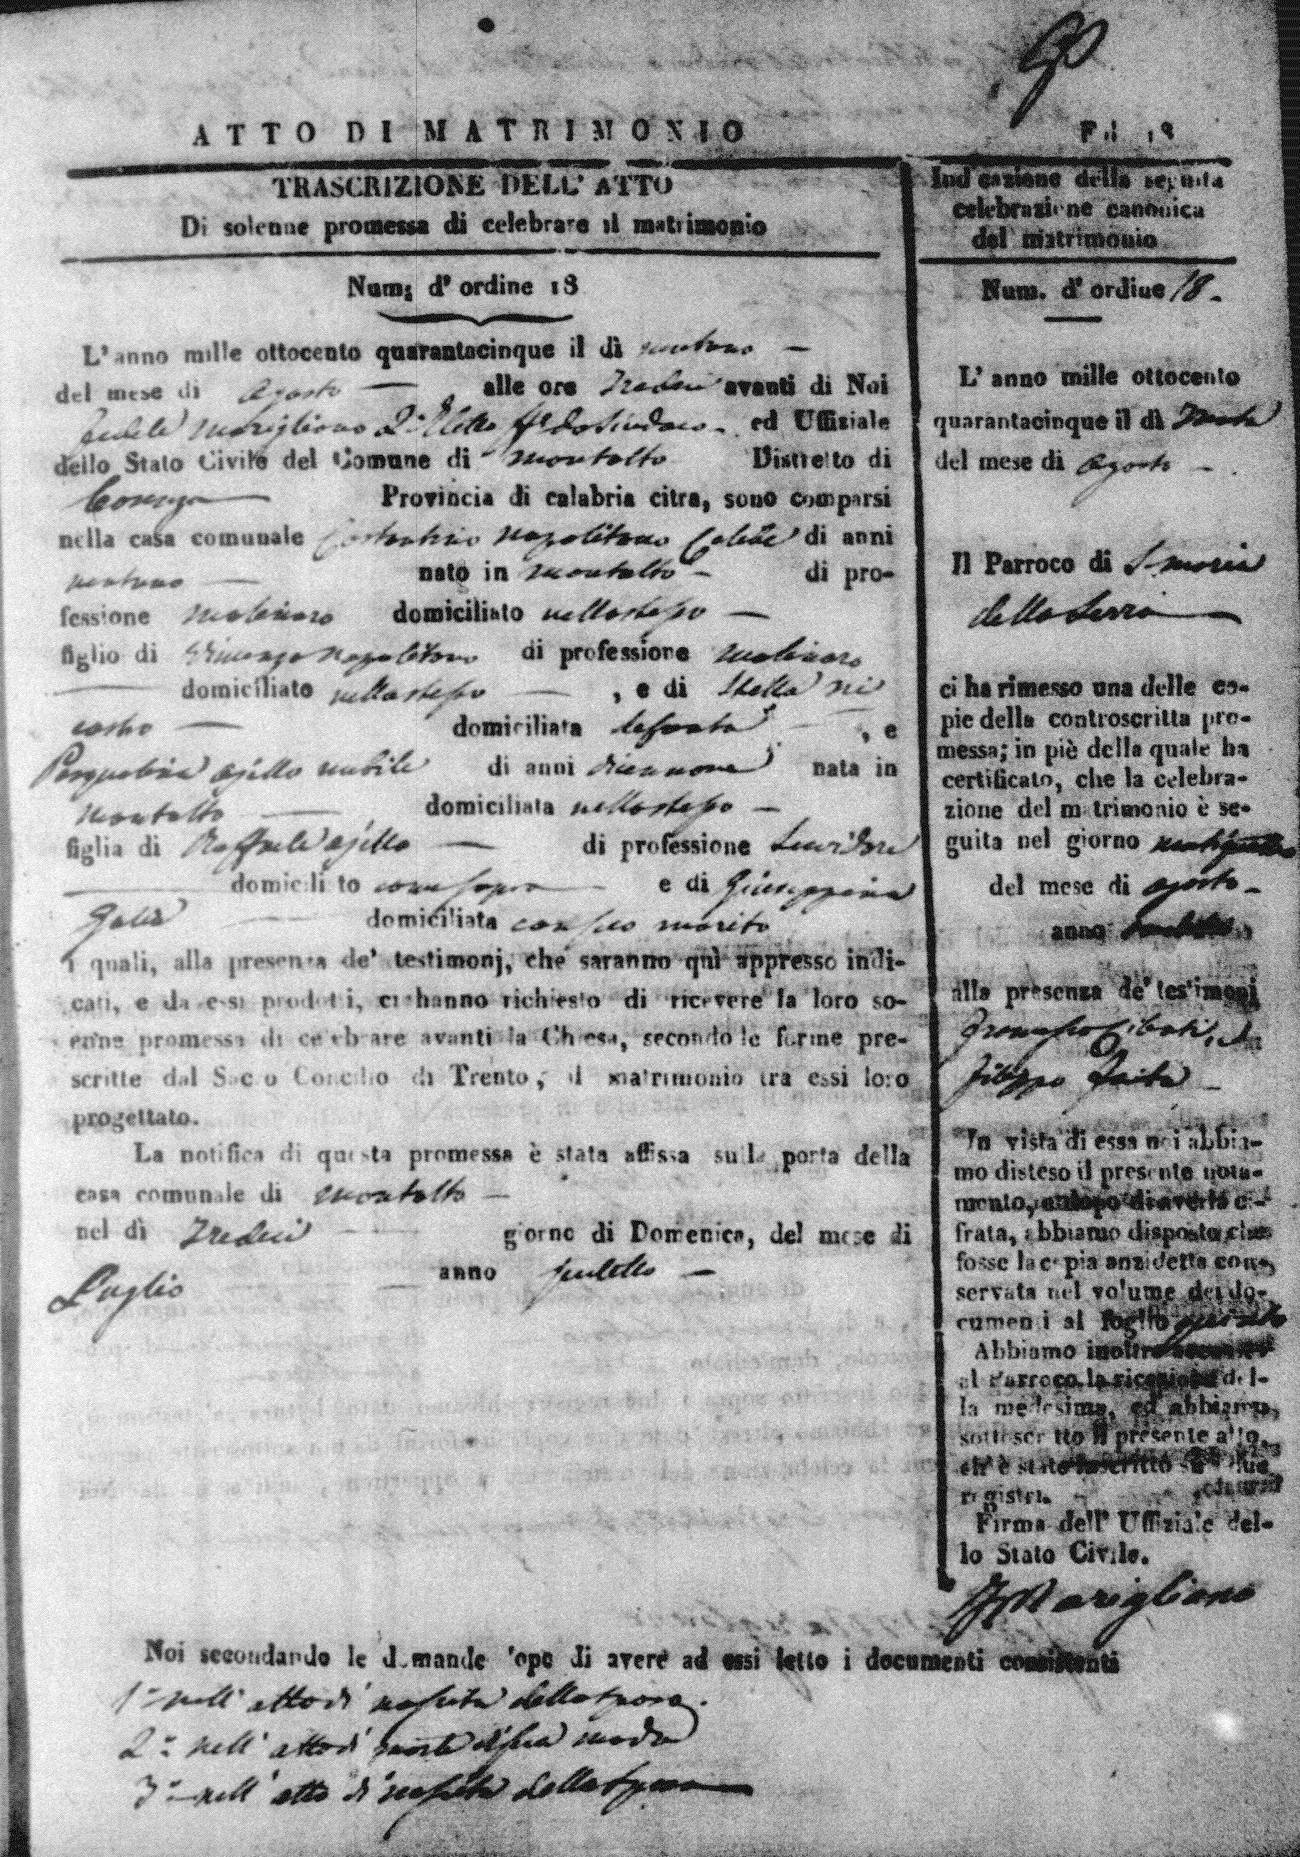 ATTO DI MATRIMONIO
TRASCRIZIONE DELL' ATTO
Di solenne promessa di celebrare il matrimonio
Num; d' ordine 18
L' anno mille ottocento quarantacinque il dì ventuno
del mese di Agosto alle ore Tredici avanti di Noi
Fedele Marigliano 2º Eletto ff. da Sindaco ed Uffiziale
dello Stato Civile del Comune di Montalto Distretto di
Cosenza Provincia di calabria citra, sono comparsi
nella casa comunale Costantino Napolitano Celibe di anni
ventuno nato in Montalto di pro-
fessione Molinaro domiciliato nello stesso
figlio di Vincenzo Napolitano di professione Molinaro
domiciliato nello stesso , e di Stella Ni
castro domiciliata defonta , e
Pasqualina Ajello nubile di anni diecinove nata in
Montalto domiciliata nello stesso
figlia di Raffaele Ajello di professione
domicili to come sopra e di Giuseppina
domiciliata con suo marito
i quali, alla presenza de' testimonj, che saranno quì appresso indi-
cati, e da essi prodotti, ci hanno richiesto di ricevere la loro so-
enne promessa di celebrare avanti la Chiesa, secondo le forme pre-
scritte dal Sacro Concilio di Trento, il matrimonio tra essi loro
progettato.
La notifica di questa promessa è stata affissa sulla porta della
casa comunale di Montalto
nel dì Tredici giorno di Domenica, del mese di
Luglio anno sudetto
Ind cazione della seguita
celebrazione canonica
del matrimonio
Num. d' ordine 18.
L' anno mille ottocento
quarantacinque il dì Trenta
del mese di Agosto
Il Parroco di S. Maria
della Serra
ci ha rimesso una delle co-
pie della controscritta pro-
messa; in piè della quale ha
certificato, che la celebra-
zione del matrimonio è se-
guita nel giorno ventiquattro
del mese di Agosto
anno sudetto
alla presenza de' testimoni
Filippo
In vista di essa noi abbia-
mo disteso il presente nota-
mento, e dopo di averla ci-
frata, abbiamo disposto che
fosse la copia anzidetta con-
servata nel volume dei do-
cumenti al foglio
Abbiamo inoltre accusato
al Parroco la ricezione del-
la medesima, ed abbiamo
sottoscritto il presente atto,
ch' è stato inscritto su i due
registri.
Firma dell' Uffiziale del-
lo Stato Civile.
F Marigliano
Noi secondando le domande dopo di avere ad essi letto i documenti consistenti
1º nell' atto di nascita dello sposo.
2º nell' atto di morte di sua madre
3º nell' atto di nascita della sposa